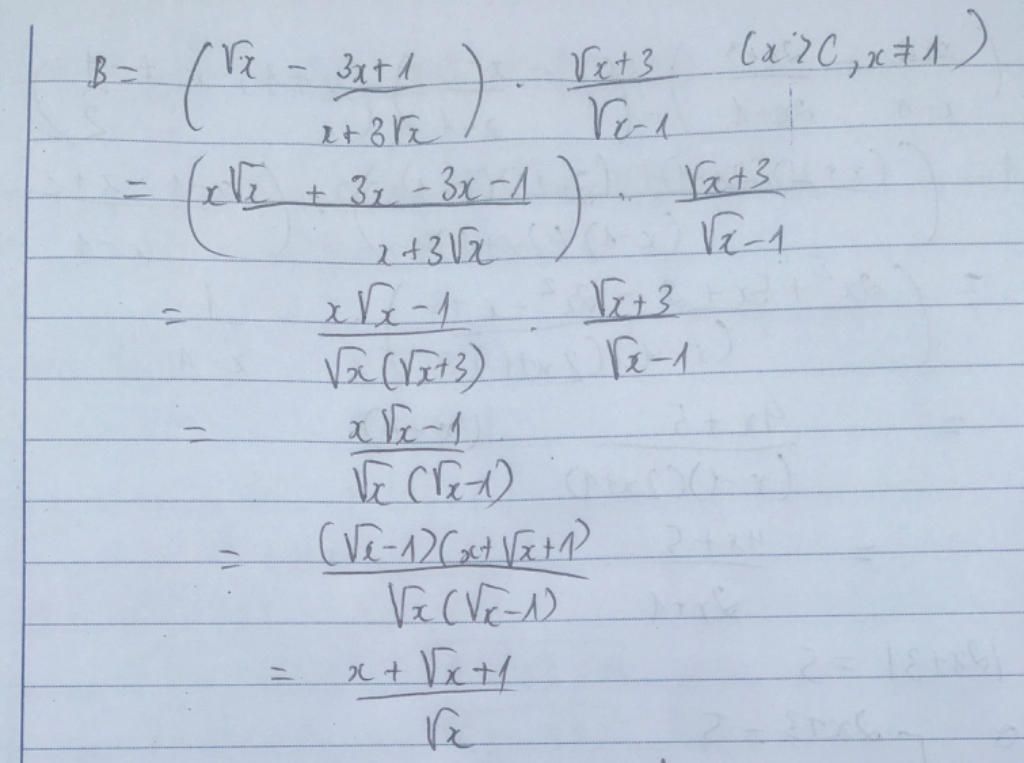 B = (√x - (3x+1)/(x+3√x)) · (√x+3)/(√x-1) (x > 0, x ≠ 1)
= ((x√x + 3x - 3x - 1)/(x+3√x)) · (√x+3)/(√x-1)
= (x√x - 1)/(√x(√x+3)) · (√x+3)/(√x-1)
= (x√x - 1)/(√x(√x-1))
= ((√x-1)(x+√x+1))/(√x(√x-1))
= (x + √x + 1)/√x